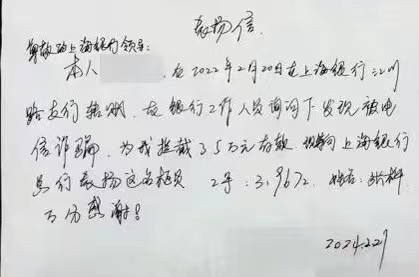 表扬信
尊敬的上海银行领导:
本人 在2022年2月20日在上海银行江川
路支行转账,在银行工作人员询问下发现被电
信诈骗,为我拦截了5万元存款,现向上海银行
员行表扬这名柜员 工号:3.9672. 姓名:
万分感谢!
2024.2.21